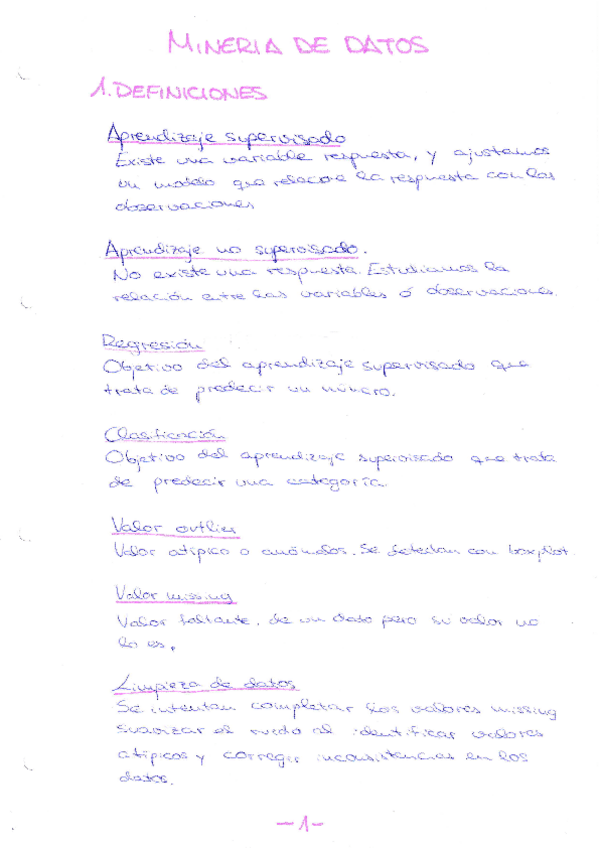 MINERIA DE DATOS
1. DEFINICIONES
Aprendizaje supervisado
Existe una variable respuesta, y ajustamos
un modelo que relacione la respuesta con las
observaciones
Aprendizaje no supervisado.
No existe una respuesta. Estudiamos la
relación entre las variables ó observaciones.
Regresión
Objetivo del aprendizaje supervisado que
trata de predecir un número.
Clasificación
Objetivo del aprendizaje supervisado que trata
de predecir una categoría.
Valor outlier
Valor atípico o anómalos. Se detectan con boxplot
Valor missing
Valor faltante, de un dato pero su valor no
lo es.
Limpieza de datos
Se intentan completar los valores missing
suavizar el ruido al identificar valores
atípicos y corregir inconsistencias en los
datos.
-1-